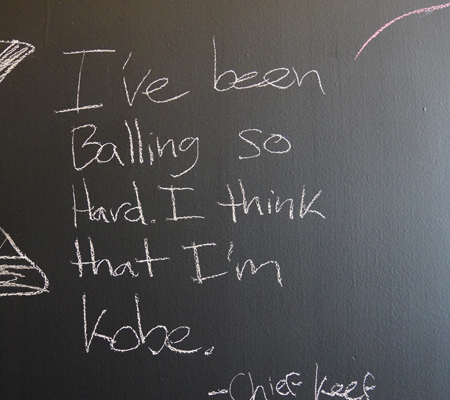 I've been
Balling so
Hard. I think
that I'm
kobe.
-Chief keef